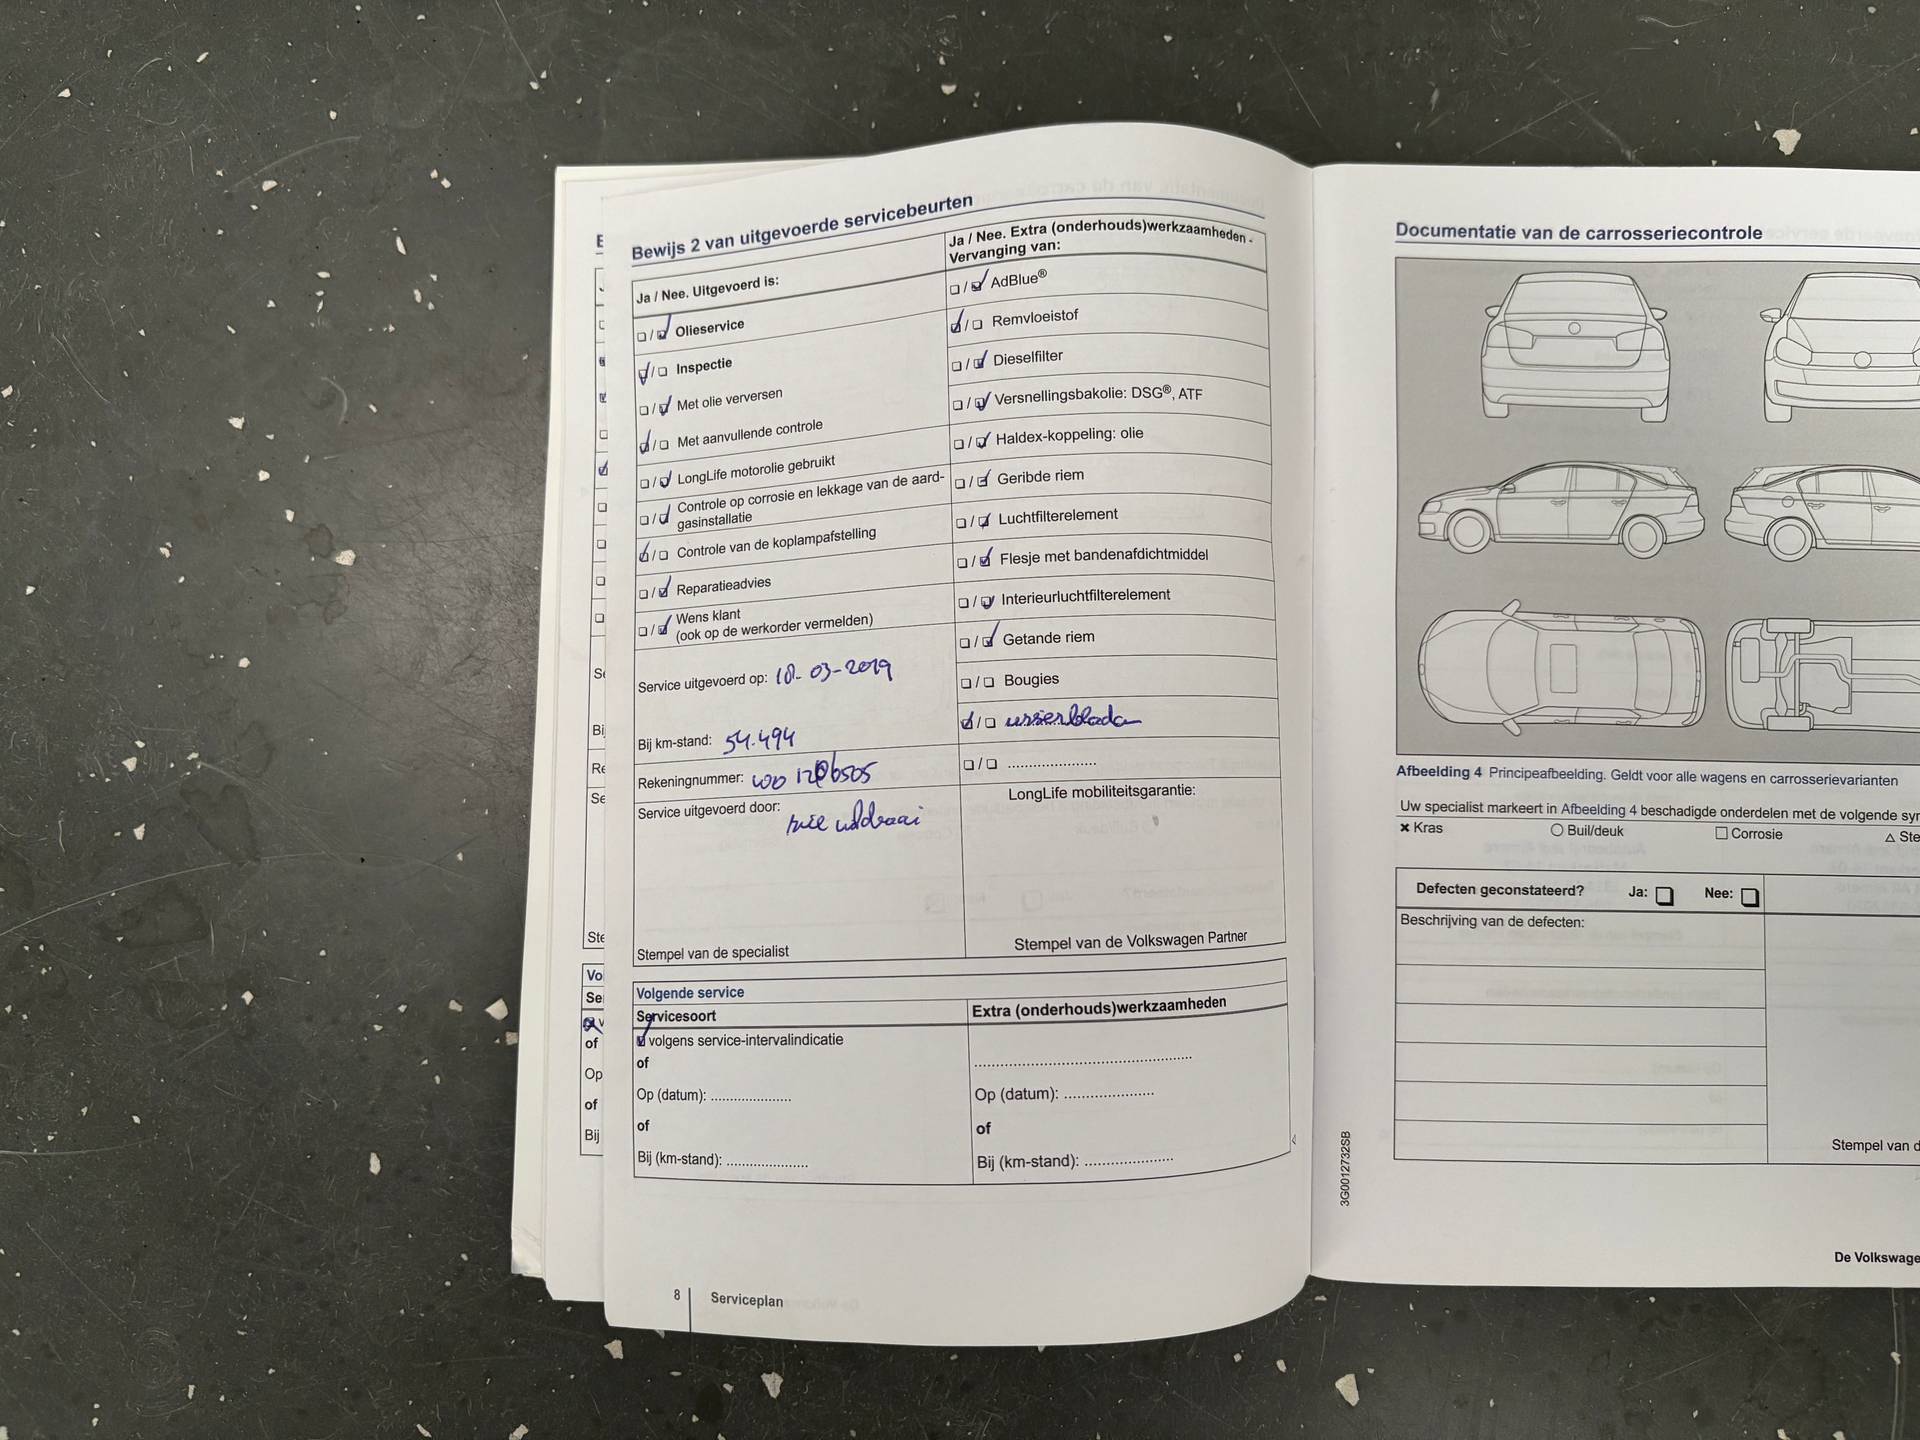 Bewijs 2 van uitgevoerde servicebeurten
Ja / Nee. Uitgevoerd is:
Olieservice
Inspectie
Met olie verversen
Met aanvullende controle
LongLife motorolie gebruikt
Controle op corrosie en lekkage van de aard-
gasinstallatie
Controle van de koplampafstelling
Reparatieadvies
Wens klant
(ook op de werkorder vermelden)
Service uitgevoerd op: 18-03-2019
Bij km-stand: 54.494
Rekeningnummer:
Service uitgevoerd door:
Stempel van de specialist
Ja / Nee. Extra (onderhouds)werkzaamheden -
Vervanging van:
AdBlue®
Remvloeistof
Dieselfilter
Versnellingsbakolie: DSG®, ATF
Haldex-koppeling: olie
Geribde riem
Luchtfilterelement
Flesje met bandenafdichtmiddel
Interieurluchtfilterelement
Getande riem
Bougies
LongLife mobiliteitsgarantie:
Stempel van de Volkswagen Partner
Volgende service
Servicesoort
volgens service-intervalindicatie
of
Op (datum): ....................
of
Bij (km-stand): ....................
Extra (onderhouds)werkzaamheden
Op (datum): ....................
of
Bij (km-stand): ....................
8 Serviceplan
Se
Bi
Re
Se
Ste
Vo
Se
of
Op
of
Bij
Documentatie van de carrosseriecontrole
Afbeelding 4 Principeafbeelding. Geldt voor alle wagens en carrosserievarianten
Uw specialist markeert in Afbeelding 4 beschadigde onderdelen met de volgende
Kras
Buil/deuk
Corrosie
Ste
Defecten geconstateerd? Ja: Nee:
Beschrijving van de defecten:
Stempel van
3G0012732SB
De Volkswage